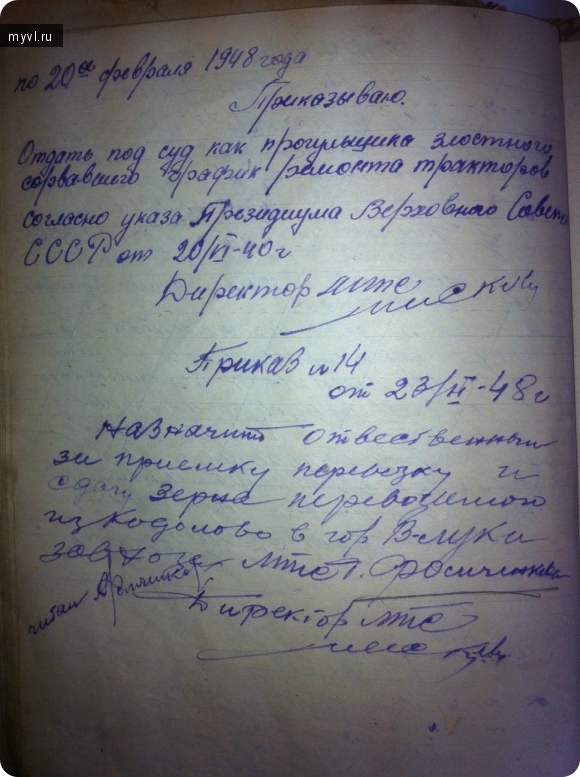 myvl.ru
по 20ое февраля 1948 года
Приказываю.
Отдать под суд как прогульщика злостного
сорвавшего график ремонта тракторов
согласно указа Президиума Верховного Совета
СССР от 20/VI-40 г
Директор мтс
Приказ № 14
от 23/II-48 г
Назначит отвественным
за приемку перевозку и
сдачу зерна перевозимого
в гор В-луки
завхоза мтс т.
читал
Директор мтс